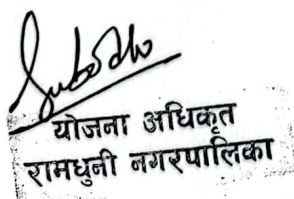 योजना अधिकृत
रामधुनी नगरपालिका